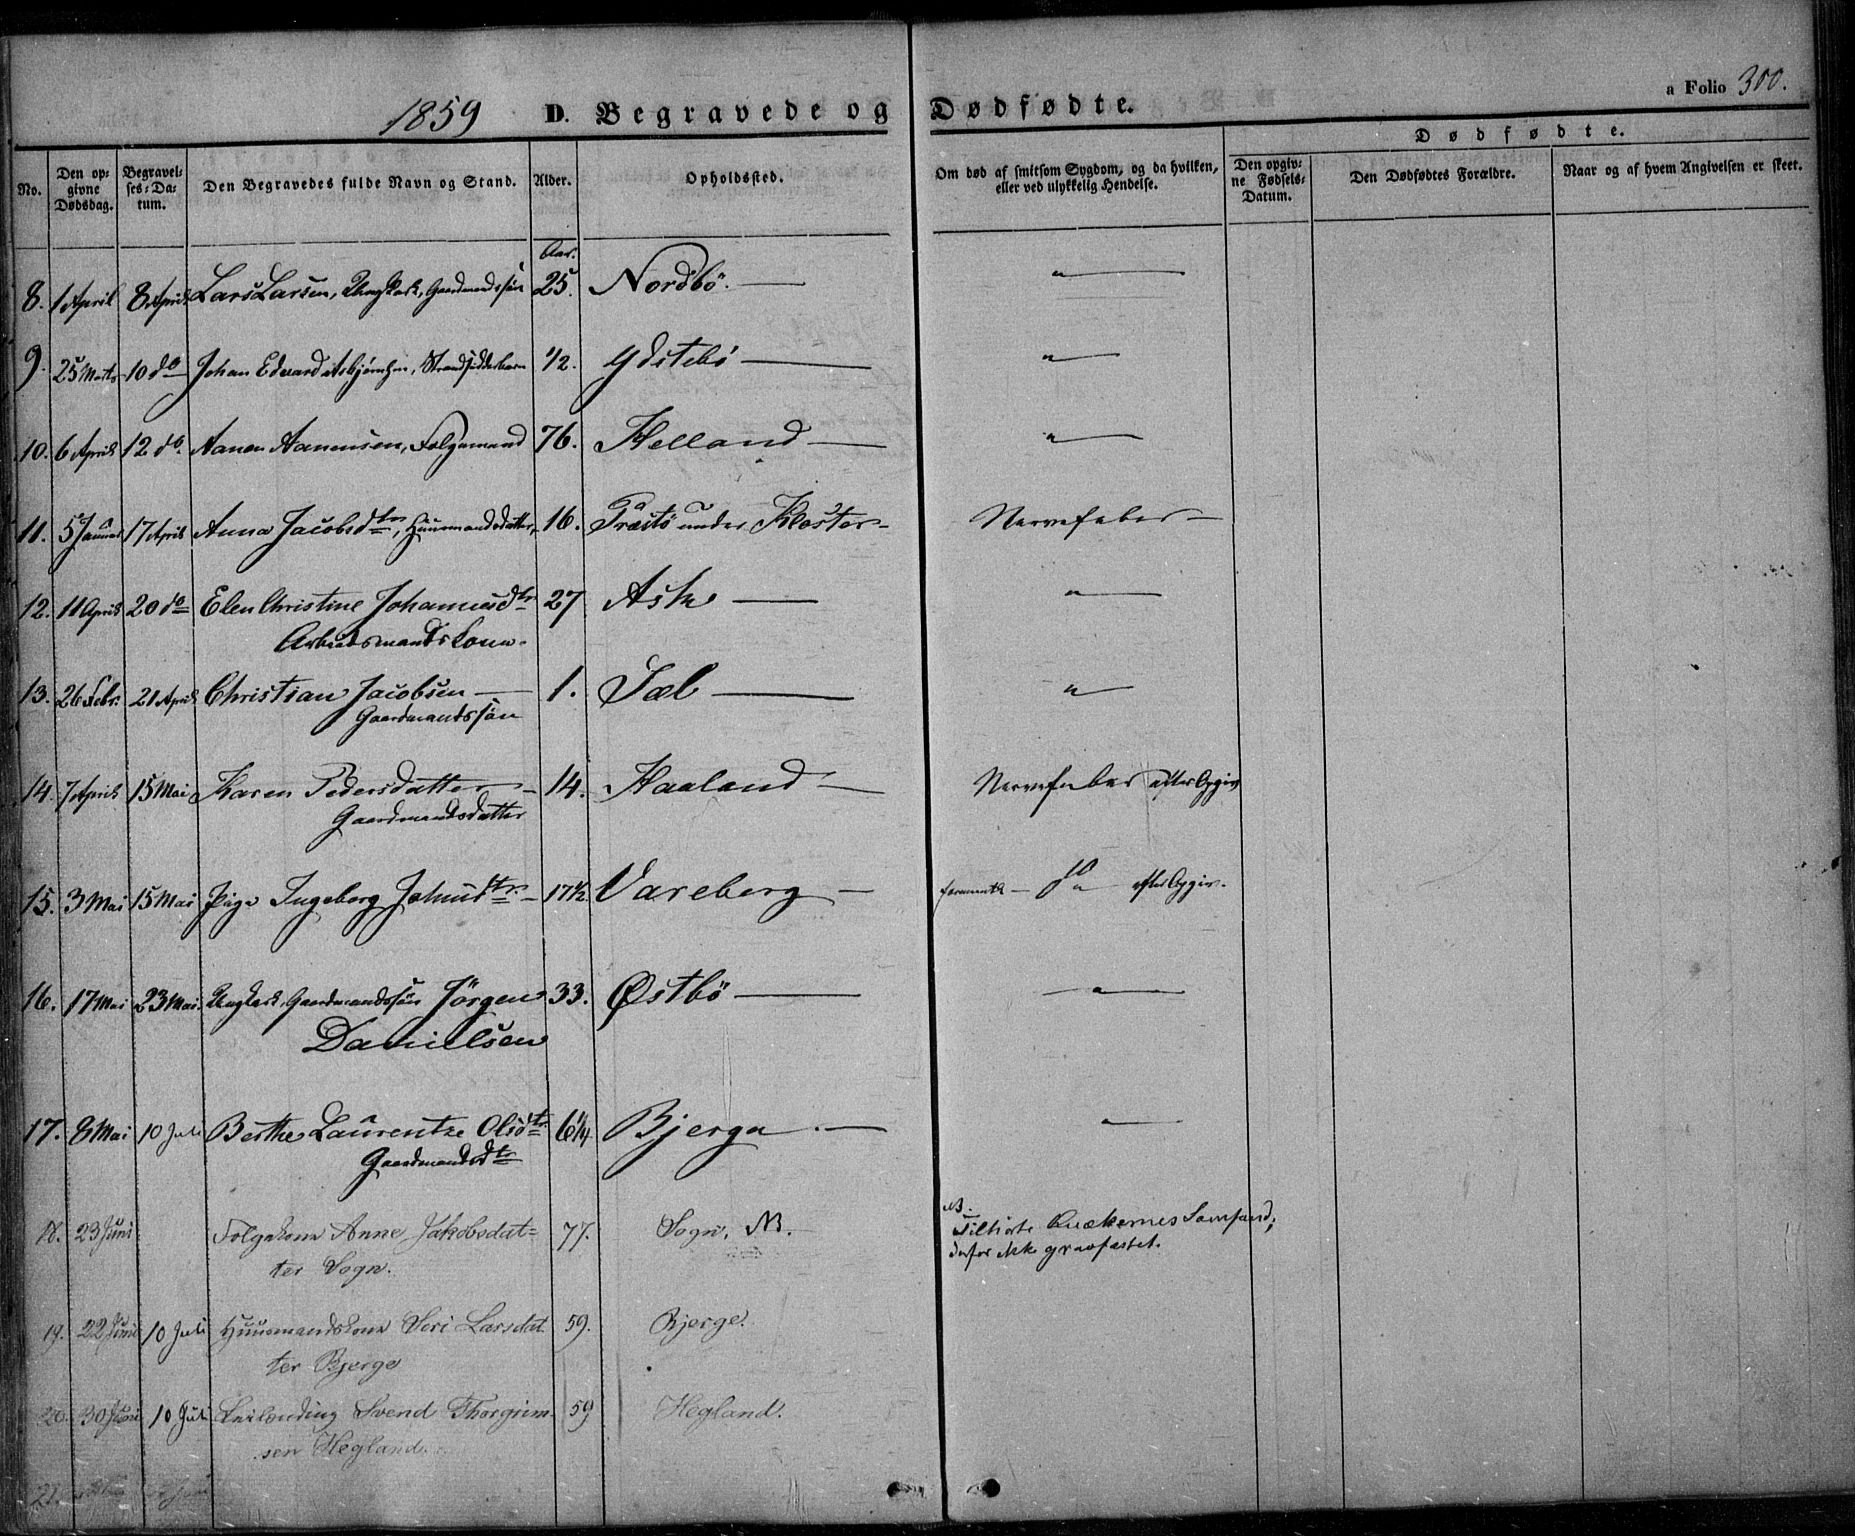 a Folio 300.
1859 D. Begravede og Dødfødte.
Dødfødte.
No. Den opgivne Dødsdag. Begravelses-Datum. Den Begravedes fulde Navn og Stand. Alder. Opholdssted. Om død af smitsom Sygdom, og da hvilken, eller ved ulykkelig Hendelse. Den opgivne Fødsels-Datum. Den Dødfødtes Forældre. Naar og af hvem Angivelsen er skeet.
Aar.
8. 1 April 8 April Lars Larsen, Ungkarl, Gaardmandssøn 25. Nordbö. — " —
9. 25 Marts 10 do Johan Edvard Asbjørnsen, Strandsidderbarn 1/2. Ydstebö — " —
10. 6 April 12 do. Aanen Aanensen, Folgemand 76. Helland — " —
11. 5 Januar 17 April Anna Jacobsdtr, Huusmandsdatter, 16. Præstö under Kloster — Nervefeber —
12. 11 April 20 do Elen Christine Johannesdtr 27 Aske — " —
Arbeidsmands Kone.
13. 26 Febr. 21 April Christian Jacobsen — 1. Sæl — " —
Gaardmandssøn
14. 7 April 15 Mai Karen Pedersdatter — 14. Haaland — Nervefeber efter Opgiv
Gaardmandsdatter
15. 3 Mai 15 Mai Pige Ingeborg Johnsdtr. — 17 1/2. Vareberg — do efter Opgiv.
16. 17 Mai 23 Mai. Ungkarl, Gaardmandssön Jörgen 33. Østbö — " —
Danielsen
17. 8 Mai 10 Juli Berthe Laurentze Olsdtr 6 1/4 Bjerga . — " —
Gaardmandsdtr
18. 23 Juni Folgekone Anne Jakobsdat- 77. Sogn, NB. NB. Tilhørte Qvækernes Samfund,
ter Sogn. derfor ikke gravfæstet.
19. 22 Juni 10 Juli Huusmandskone Siri Larsdat 59. Bjerge.
ter Bjerge
20. 30 Juni 10 Juli Leilending Svend Thorgrim- 59 Hegland.
sen Hegland.
21.